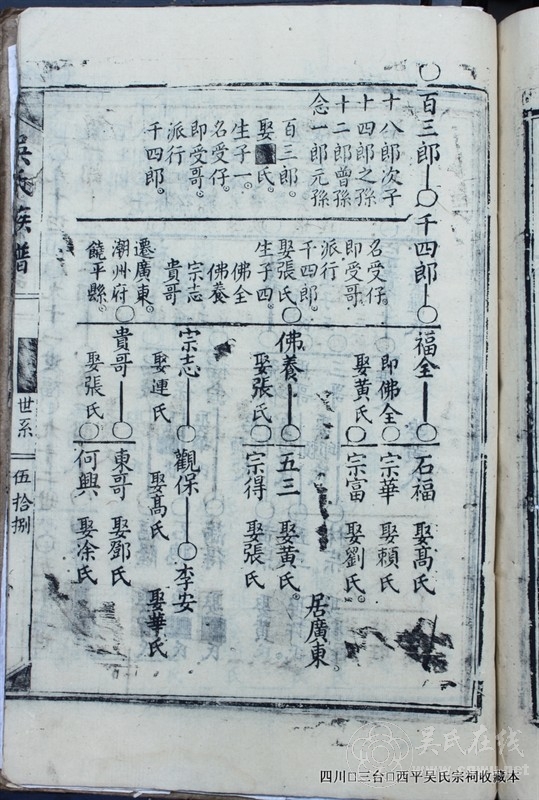 百三郎 千四郎 福全 石福 娶高氏
十八郎次子
十四郎之孫
十二郎曾孫
念一郎元孫
百三郎。
娶 氏。
生子一。
名受仔。
即受哥。
派行
千四郎。
名受仔。
即受哥。
派行
千四郎。
娶張氏。
生子四。
佛全
佛養
宗志
貴哥
遷廣東。
潮州府
饒平縣。
即佛全。
娶黃氏。
宗華 娶賴氏
宗富 娶劉氏。
居廣東。
佛養 五三 娶黃氏。
娶張氏。 宗得 娶張氏
宗志 觀保 李安
娶連氏 娶高氏 娶華氏
貴哥 東哥 娶鄧氏
娶張氏 何興 娶涂氏
吳氏族譜
世系
伍拾捌
吴氏在线
四川□三台□西平吴氏宗祠收藏本